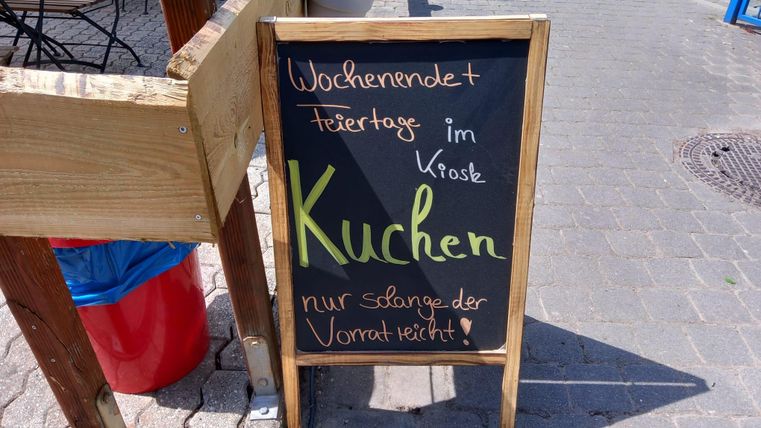 Wochenende +
Feiertage
im
Kiosk
Kuchen
nur solange der
Vorrat reicht!